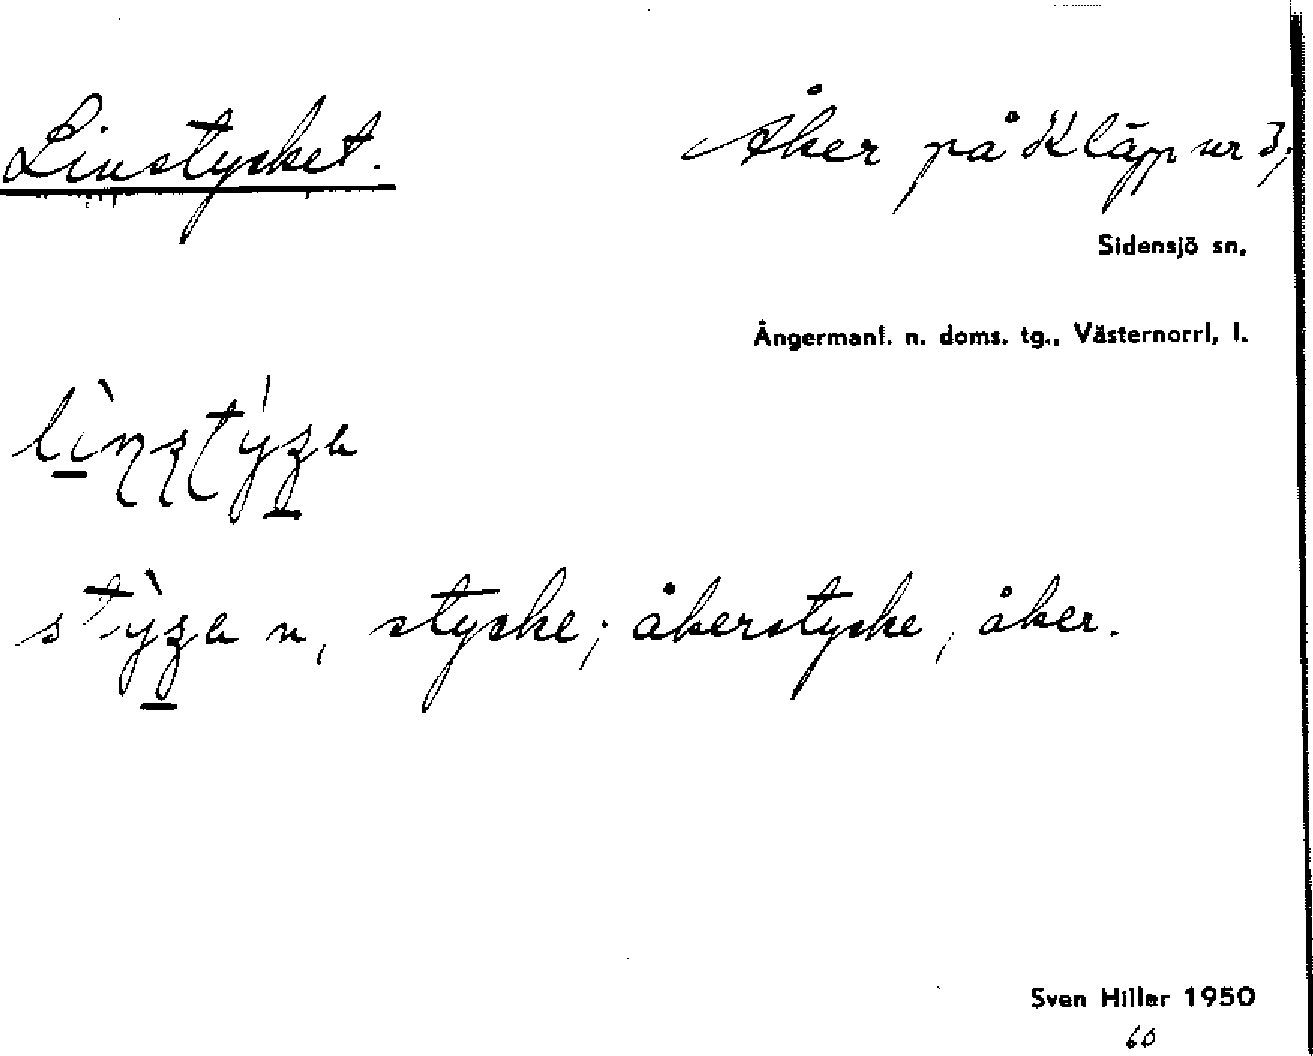 Linstycket. Åker på Kläpp nr 3,
Sidensjö sn.
Ångermanl. n. doms. tg., Västernorrl. l.
n, stycke; åkerstycke, åker.
Sven Hiller 1950
60